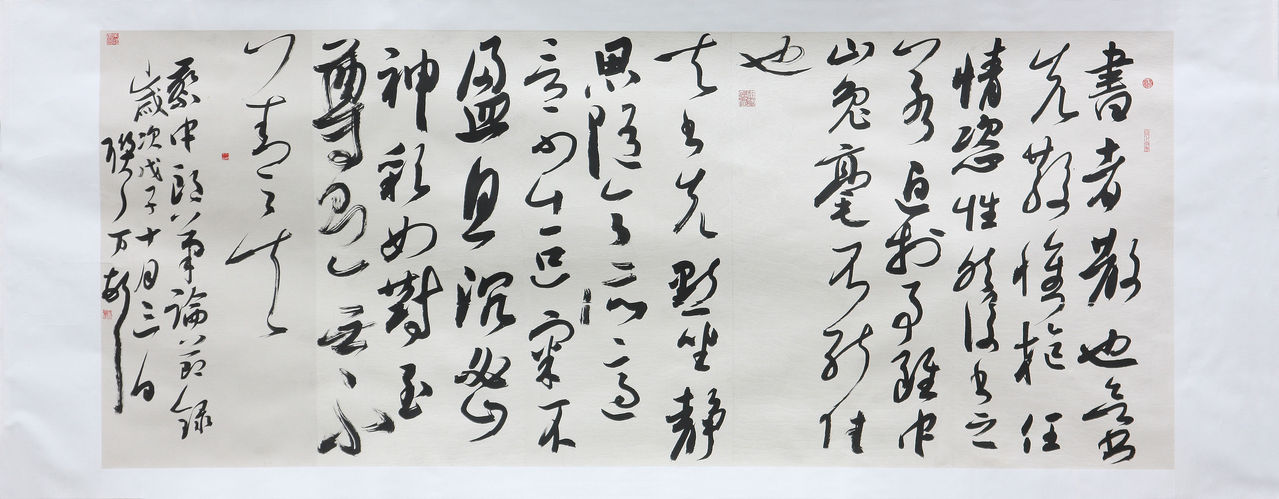 書者散也欲書
先散懷抱任
情恣性然後書之
若迫於事雖中
山兔毫不能佳
也
夫書先默坐靜
思隨意所適
言不出口氣不
盈息沉密
神彩如對至
尊則無不
善矣
蔡中郎筆論節錄
歲次戊子十月三日